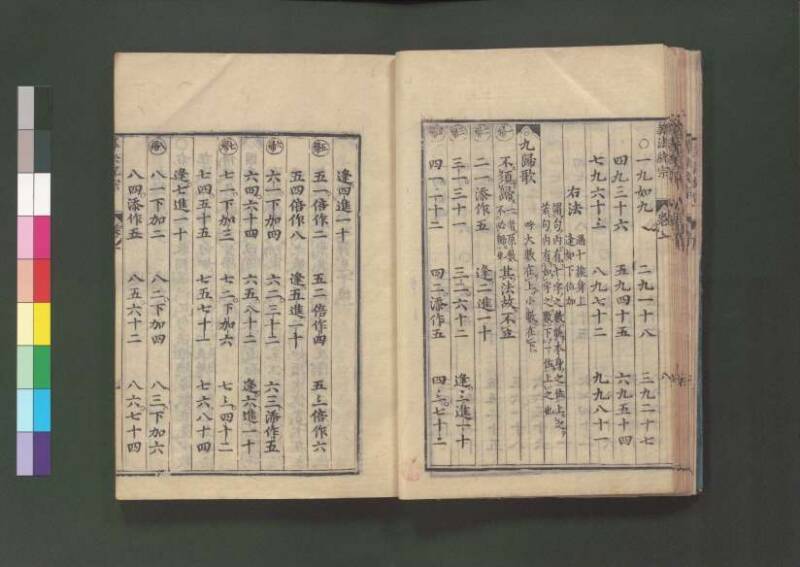 ○一九如九 二九一十八 三九二十七
四九三十六 五九四十五 六九五十四
七九六十三 八九七十二 九九八十一
右法
九歸歌
一歸 不須歸 其法故不立
二歸 二一添作五 逢二進一十
三歸 三一三十一 三二六十二 逢三進一十
四歸 四一二十二 四二添作五 四三七十二
逢四進一十
五歸 五一倍作二 五二倍作四 五三倍作六
五四倍作八 逢五進一十
六歸 六一下加四 六二三十二 六三添作五
六四六十四 六五八十二 逢六進一十
七歸 七一下加三 七二下加六 七三四十二
七四五十五 七五七十一 七六八十四
逢七進一十
八歸 八一下加二 八二下加四 八三下加六
八四添作五 八五六十二 八六七十四